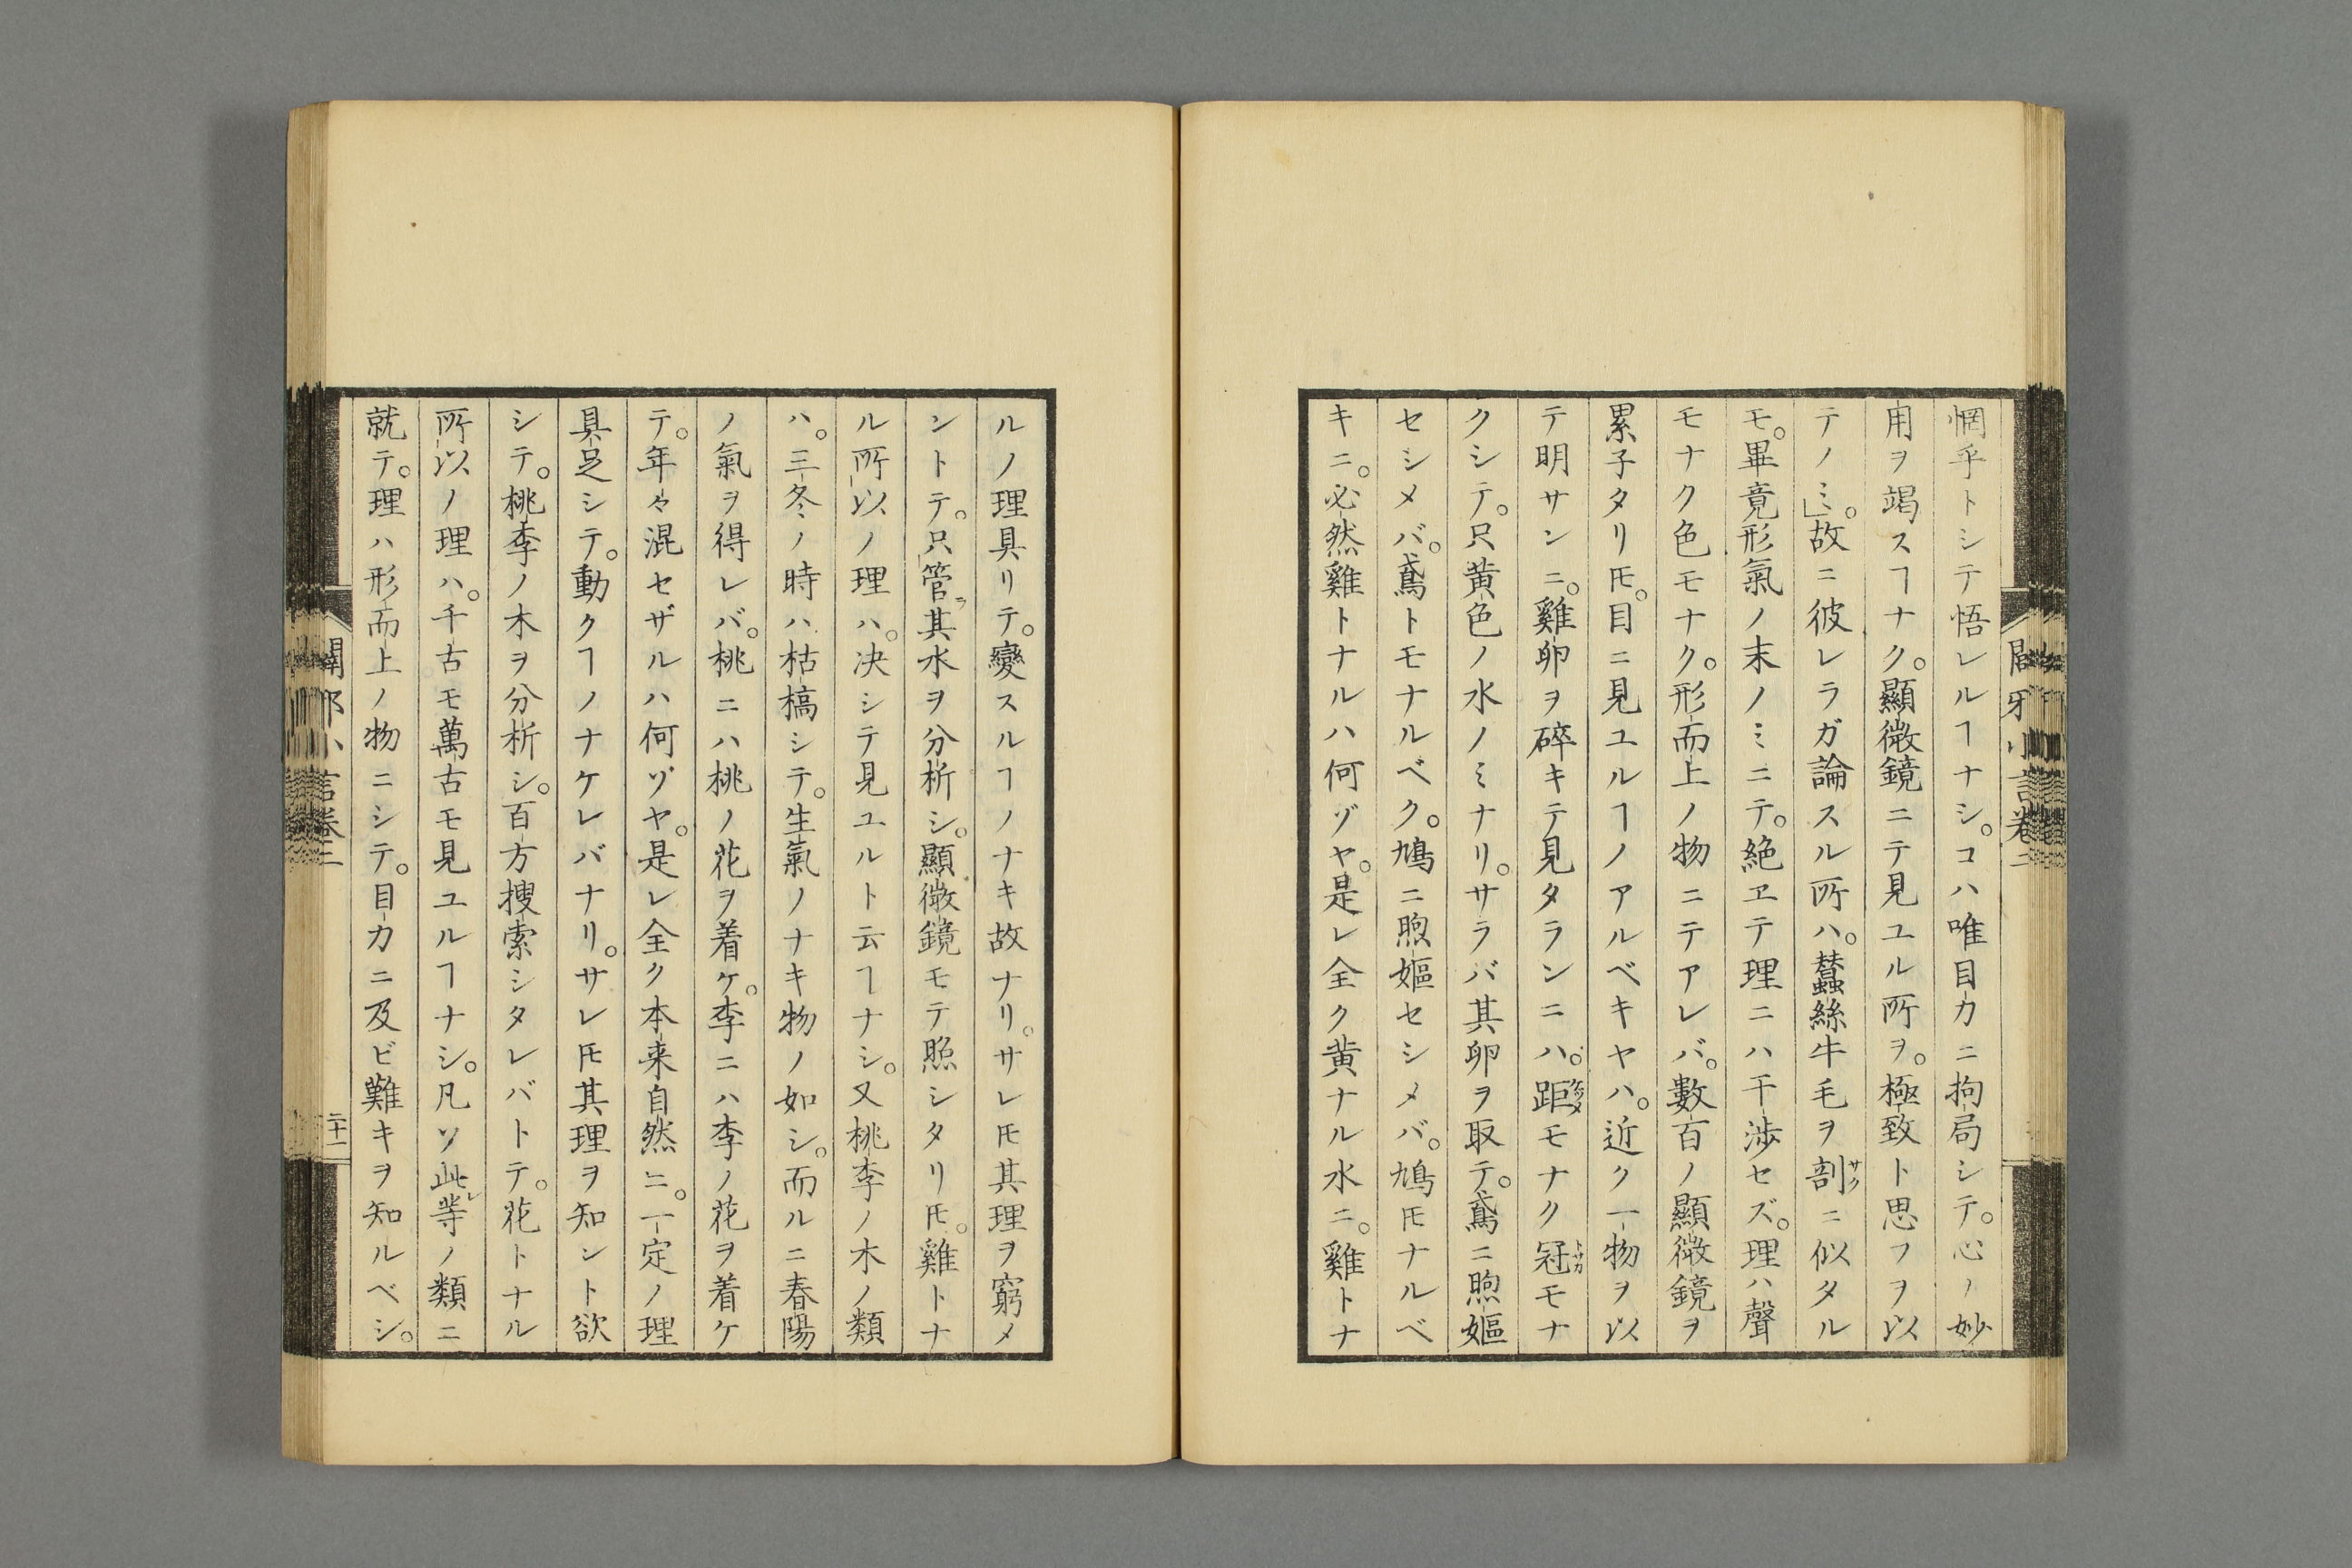 惘乎トシテ悟レルヿナシ。コハ唯目力ニ拘局シテ。心ノ妙
用ヲ竭スヿナク。顯微鏡ニテ見ユル所ヲ。極致ト思フヲ以
テノミ。」故ニ彼レラガ論スル所ハ。蠶絲牛毛ヲ剖サクニ似タル
モ。畢竟形氣ノ末ノミニテ。絶ヱテ理ニハ干渉セズ。理ハ聲
モナク色モナク。形而上ノ物ニテアレバ。數百ノ顯微鏡ヲ
累子タリ𪜈。目ニ見ユルヿノアルベキヤハ。近ク一物ヲ以
テ明サンニ。雞卵ヲ碎キテ見タランニハ。距ケツメモナク冠トサカモナ
クシテ。只黄色ノ水ノミナリ。サラバ其卵ヲ取テ。鳶ニ煦嫗
セシメバ。鳶トモナルベク。鳩ニ煦嫗セシメバ。鳩𪜈ナルベ
キニ。必然雞トナルハ何ゾヤ。是レ全ク黄ナル水ニ。雞トナ
ルノ理具リテ。變スルヿノナキ故ナリ。サレ𪜈其理ヲ窮メ
ントテ。只管ラ其水ヲ分析シ。顯微鏡モテ照シタリ𪜈。雞トナ
ル所以ノ理ハ。决シテ見ユルト云ヿナシ。又桃李ノ木ノ類
ハ。三冬ノ時ハ枯槁シテ。生氣ノナキ物ノ如シ。而ルニ春陽
ノ氣ヲ得レバ。桃ニハ桃ノ花ヲ着ケ。李ニハ李ノ花ヲ着ケ
テ。年々混セザルハ何ゾヤ。是レ全ク本来自然ニ。一定ノ理
具足シテ。動クヿノナケレバナリ。サレ𪜈其理ヲ知ント欲
シテ。桃李ノ木ヲ分析シ。百方搜索シタレバトテ。花トナル
所以ノ理ハ。千古モ萬古モ見ユルヿナシ。凡ソ此レ等ノ類ニ
就テ。理ハ形而上ノ物ニシテ。目力ニ及ビ難キヲ知ルベシ。
二十一